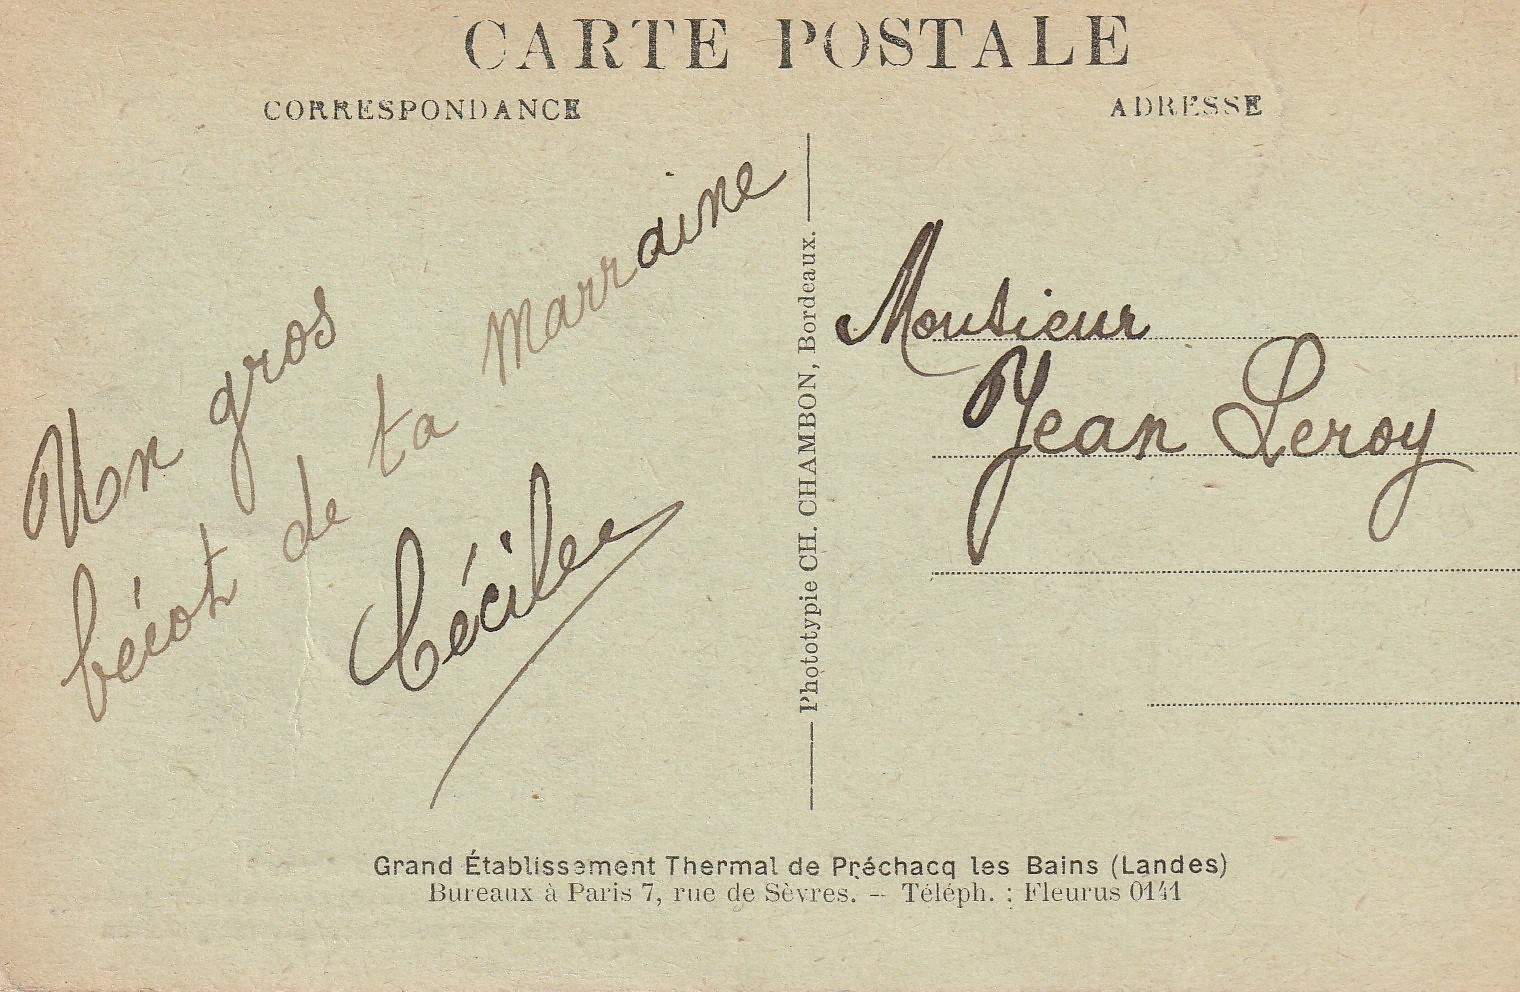 CARTE POSTALE
CORRESPONDANCE
ADRESSE
Un gros
bécot de ta marraine
Cécile
Phototypie CH. CHAMBON, Bordeaux.
Monsieur
Jean Leroy
Grand Établissement Thermal de Préchacq les Bains (Landes)
Bureaux à Paris 7, rue de Sèvres. — Téléph. : Fleurus 0141